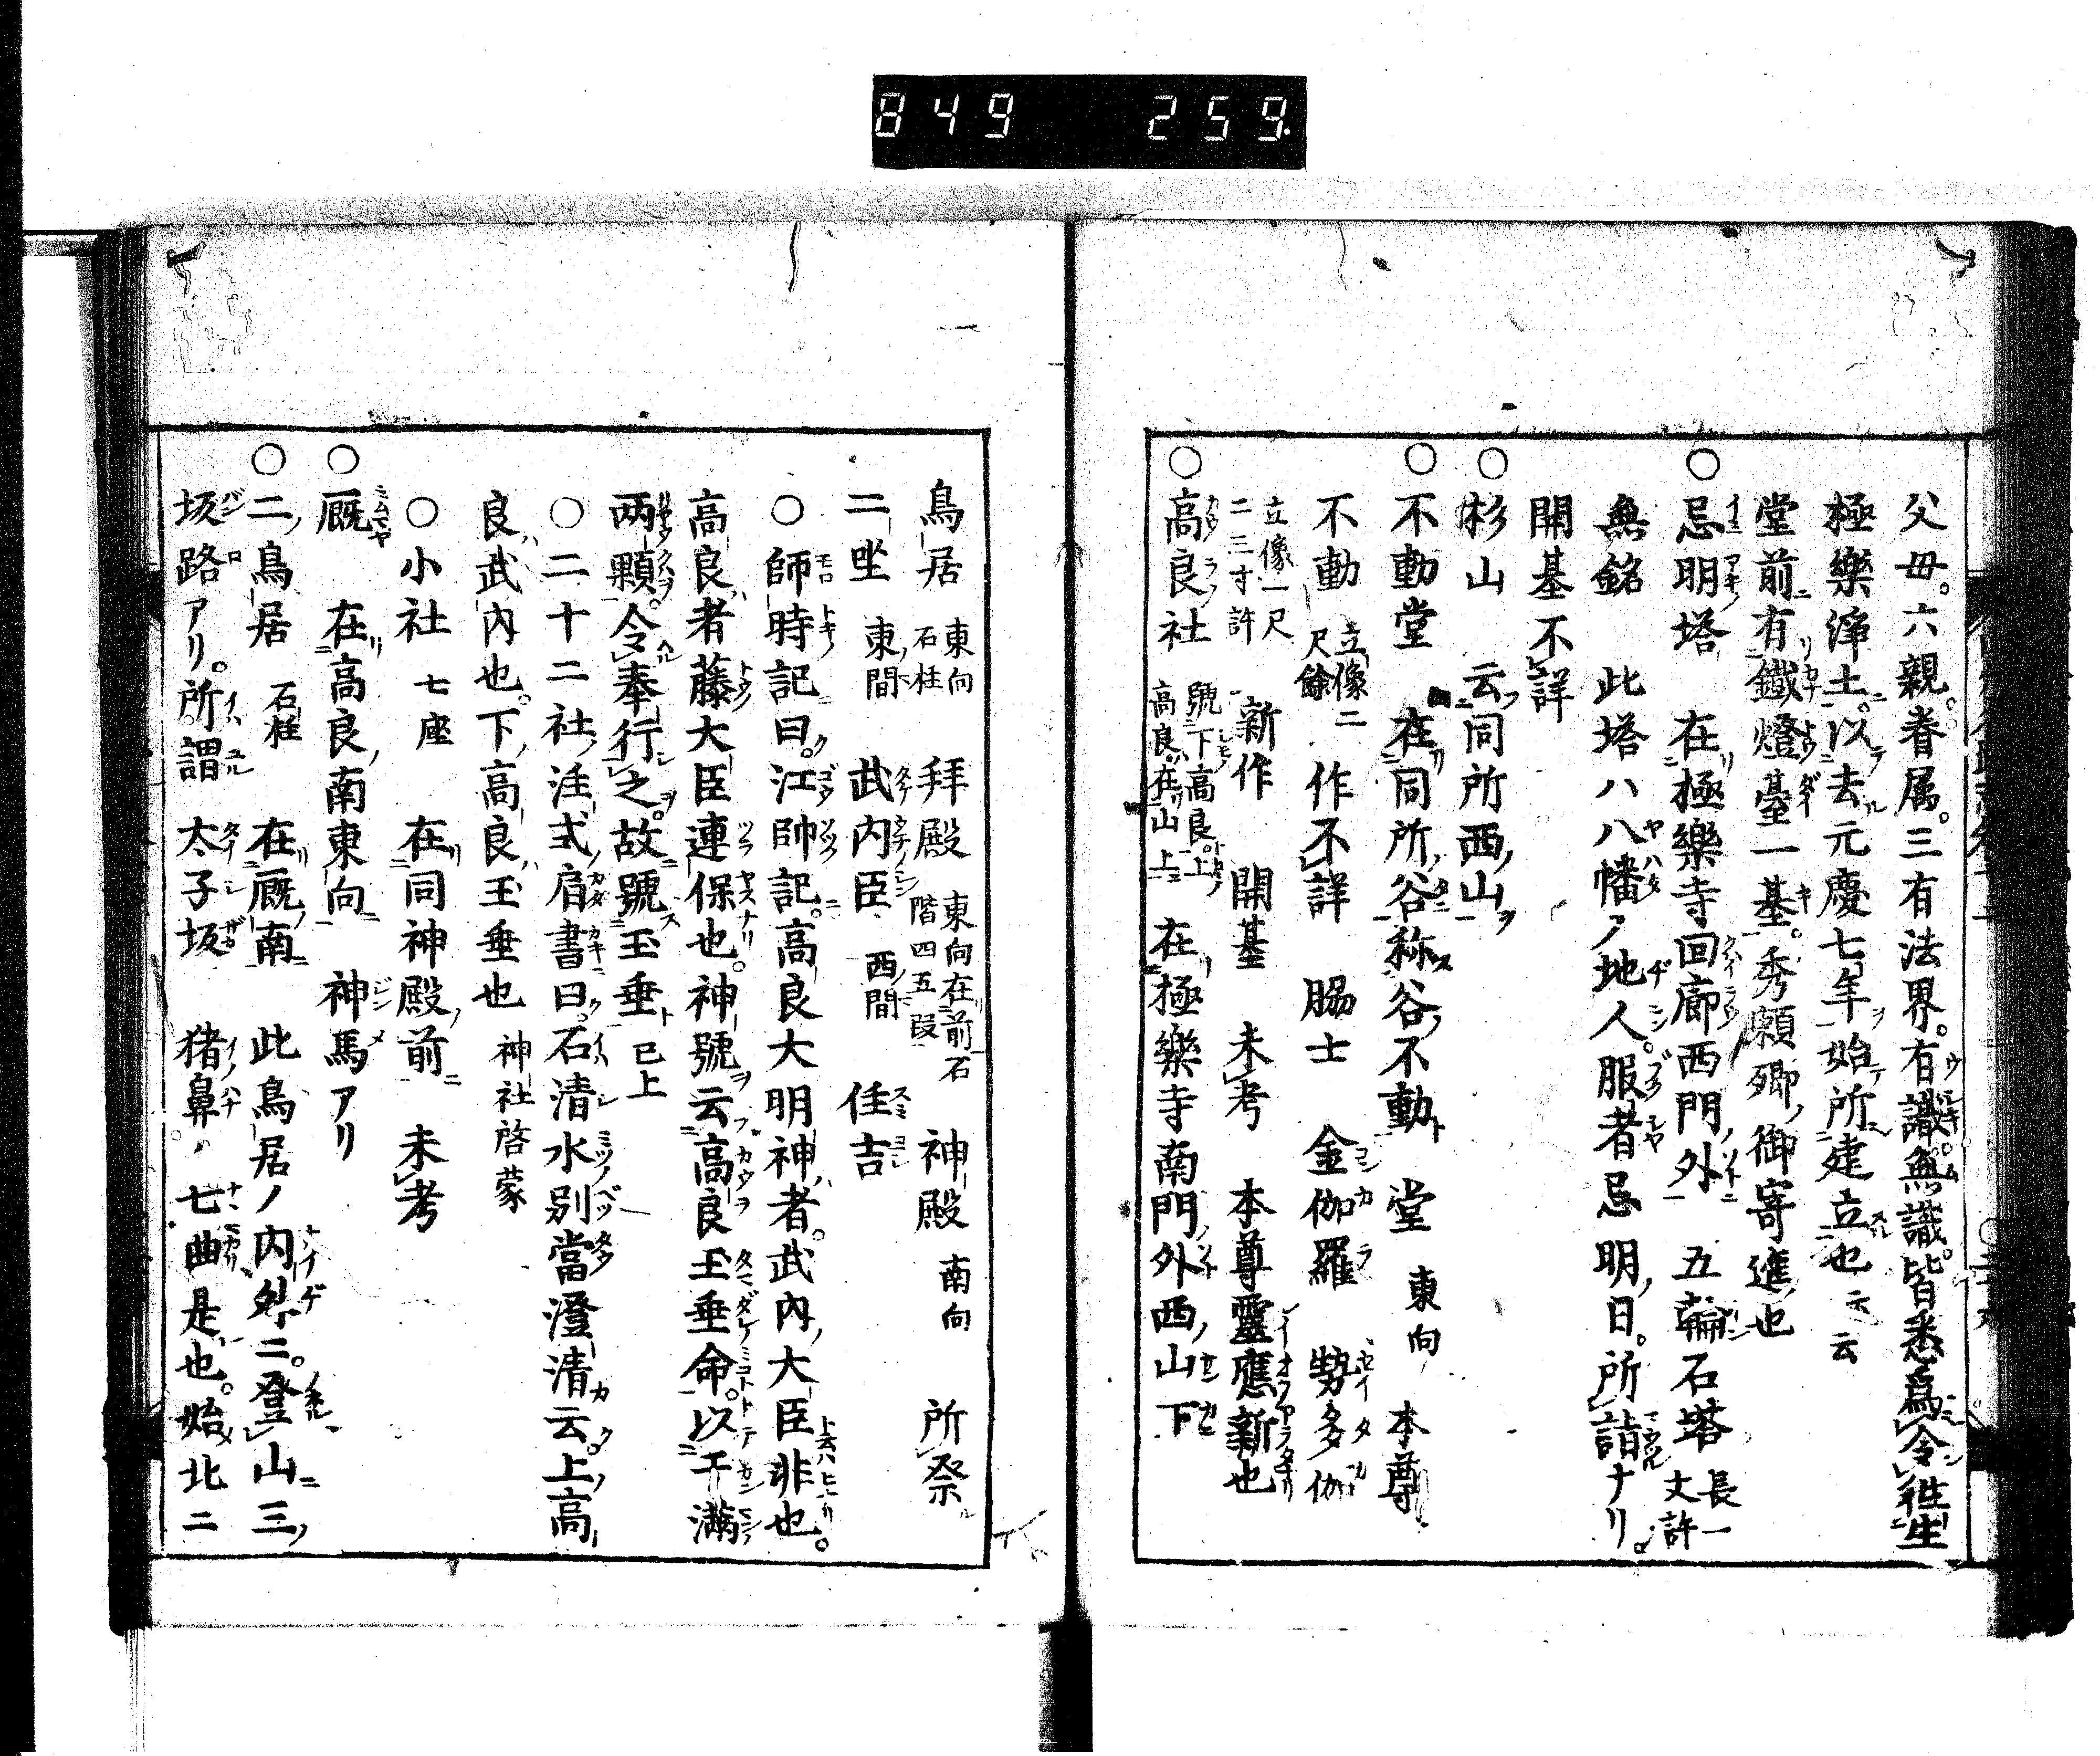 849 259.
父母。六親。眷属。三有法界。有識無識。皆悉為令往生
極樂淨土。以去元慶七年始所建立也云云
堂前有鐵燈臺一基。秀頼卿ノ御寄進也
○忌明塔 在極樂寺回廊西門ノ外 五輪石塔 長一丈許
無銘 此塔ハ八幡ノ地人。服者忌明ノ日。所詣ナリ。
開基不詳
○杉山 云同所西ノ山ヲ
○不動堂 在同所ノ谷称谷ノ不動 堂 東向 本尊
不動 立像二尺餘 作不詳 脇士 金伽羅 勢多伽
立像一尺二三寸許 新作 開基 未考 本尊靈應新也
○高良社 號下高良上高良ハ在山上 在極樂寺南門ノ外西ノ山下
鳥居 東向石柱 拜殿 東向在前石階四五段 神殿 南向 所祭
二坐 東ノ間 武内臣 西ノ間 住吉
○師時記曰。江帥記。高良大明神者。武内ノ大臣非也。
高良者藤大臣連保也。神號云高良玉垂命。以干滿
两顆。令奉行之。故號玉垂 已上
○二十二社註式肩書曰。石清水別當澄清云。上高
良武内也。下ノ高良ハ玉垂也 神社啓蒙
○小社 七座 在同神殿ノ前 未考
○厩 在高良ノ南東向 神馬アリ
○二ノ鳥居 石柱 在厩ノ南 此鳥居ノ内外ニ。登山三ノ
坂路アリ。所謂 太子坂 猪鼻ノ 七曲是也。始北ニ